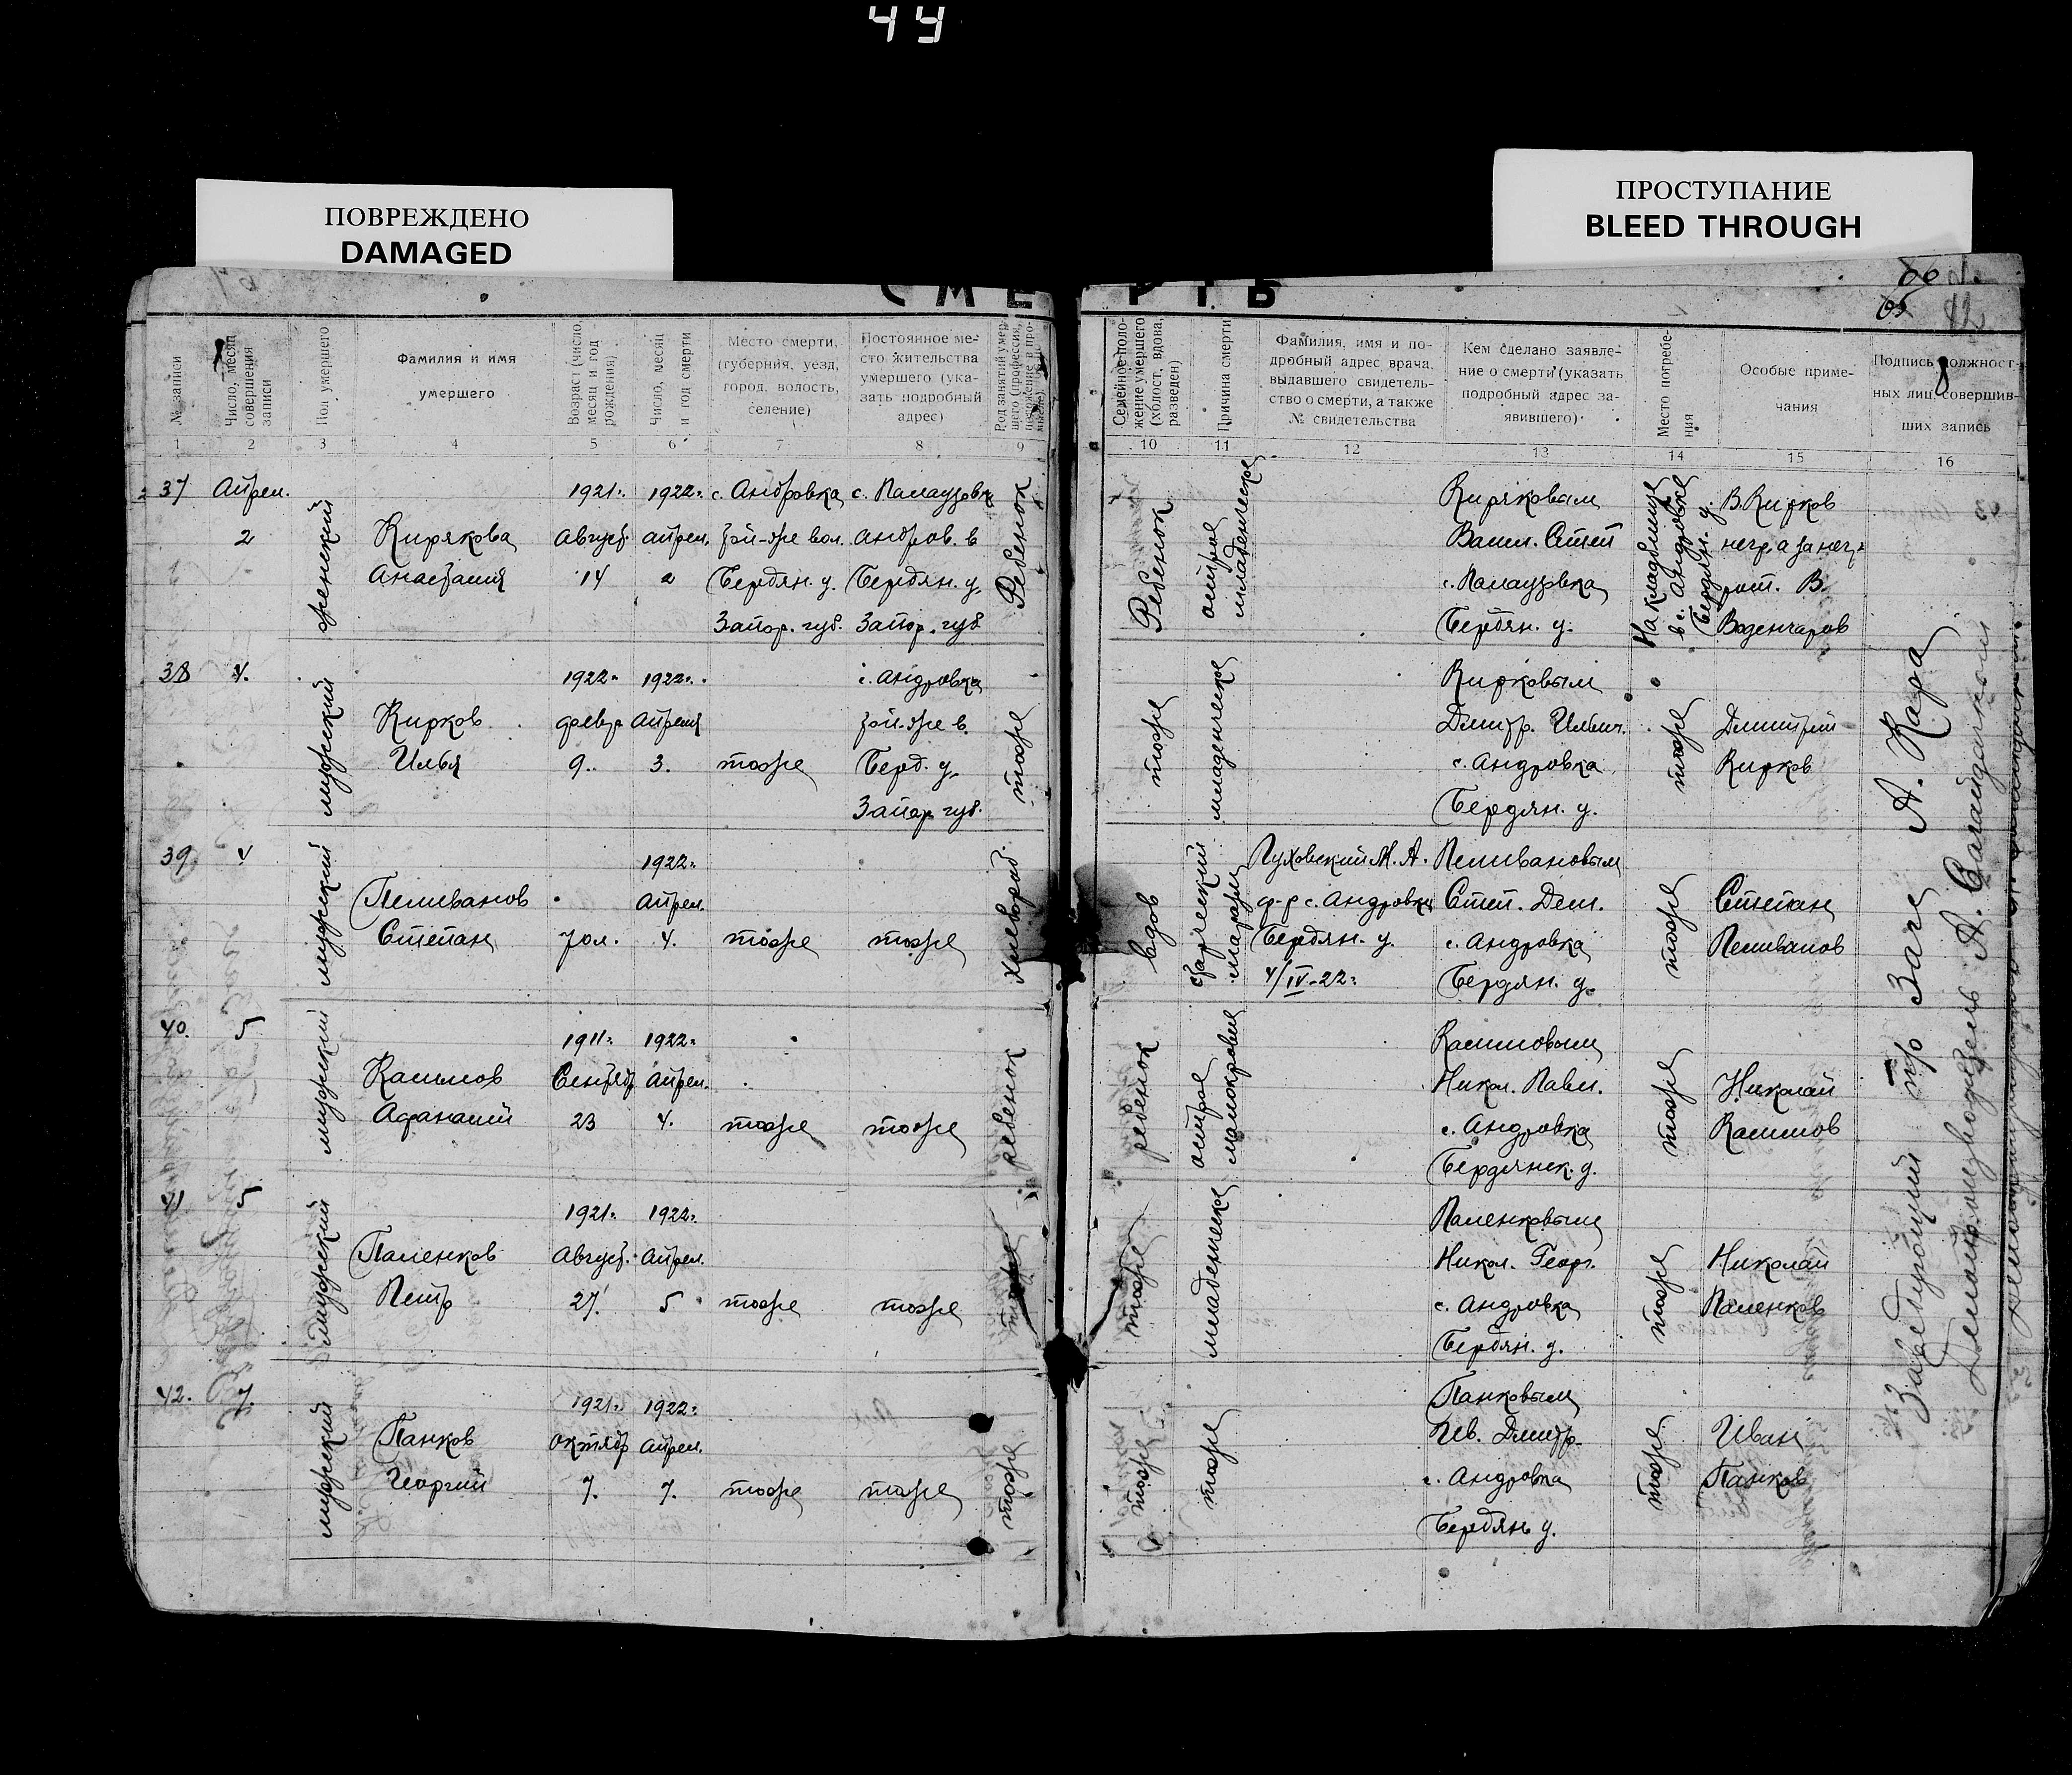 44
ПОВРЕЖДЕНО
DAMAGED
ПРОСТУПАНИЕ
BLEED THROUGH
СМЕРТЬ
65
№ записи
Число, месяц совершения записи
Пол умершего
Фамилия и имя умершего
Возраст (число, месяц и год рождения)
Число, месяц и год смерти
Место смерти, (губерния, уезд, город, волость, селение)
Постоянное место жительства умершего (указать подробный адрес)
Семейное положение умершего (холост, вдова, разведен)
Причина смерти
Фамилия, имя и подробный адрес врача, выдавшего свидетельство о смерти, а также № свидетельства
Кем сделано заявление о смерти (указать подробный адрес заявившего)
Место погребения
Особые примечания
Подпись должностных лиц, совершивших запись
1 2 3 4 5 6 7 8 9 10 11 12 13 14 15 16
37 Апрел. 1921г. 1922г. с. Андровка с. Палаузовка Киряковым В. Кирков
2 женский Кирякова Август. апрел. той-же вол. андров. в Ребенок Ребенок острое младенческое Васил. Степ На кладбище в с. Андровке Бердян. у. негр. а за негр
Анастасия 14 2 Бердян. у. Бердян. у. с. Палаузовка рот. В.
Запор. губ. Запор. губ. Бердян. у. Воденчаров
38 4. 1922г. 1922г. с. Андровка Кирковым
мужский Кирков февр апреля той-же в. тоже тоже младенческое Дмитр. Ильич. тоже Дмитрий
Илья 9. 3. тоже Берд. у. с. Андровка Кирков
Запор. губ. Бердян. у.
39 4 1922г. Пуховский М. А. Пешивановым
мужский Пешиванов апрел. хлебороб. вдов старческий маразм ф-р с. Андровки Степ. Дем. тоже Степан
Степан 70л. 4. тоже тоже Бердян. у. с. Андровка Пешиванов
4/IV-22г. Бердян. у.
40. 5 1911г. 1922г. Касимовым
мужский Касимов Сентябр Апрел. ребенок ребенок острое малокровие Никол. Павл. тоже Николай
Афанасий 23 4. тоже тоже с. Андровка Касимов
Бердянск. у.
41 5 1921г. 1922г. Паленковым
мужский Паленков Август. Апрел. тоже тоже младенческое Никол. Георг. тоже Николай
Петр 27. 5 тоже тоже с. Андровка Паленков
Бердян. у.
42. 7. 1921г. 1922г. Панковым
мужский Панков октябр Апрел. тоже тоже тоже Ив. Дмитр. тоже Иван
Георгий 7. 7. тоже тоже с. Андровка Панков
Бердян у.
Заведующий п/о Загс А. Кара
Делопроизводитель А.